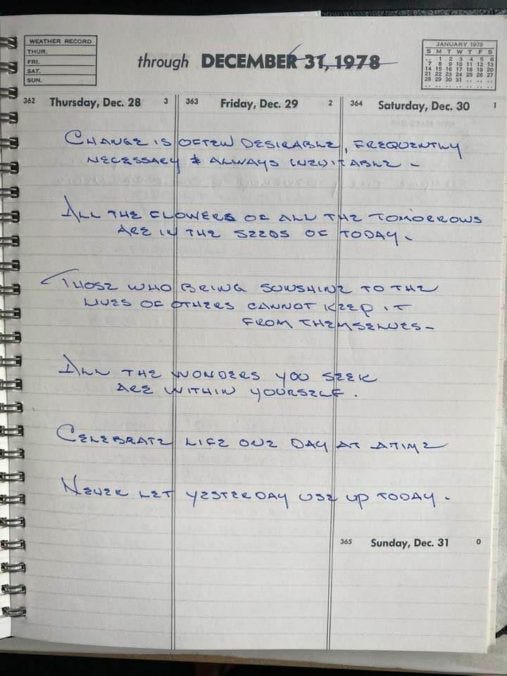 WEATHER RECORD
THUR.
FRI.
SAT.
SUN.
through DECEMBER 31, 1978
JANUARY 1979
S M T W T F S
1 2 3 4 5 6
7 8 9 10 11 12 13
14 15 16 17 18 19 20
21 22 23 24 25 26 27
28 29 30 31
362 Thursday, Dec. 28 3
363 Friday, Dec. 29 2
364 Saturday, Dec. 30 1
CHANGE IS OFTEN DESIRABLE, FREQUENTLY
NECESSARY & ALWAYS INEVITABLE -
ALL THE FLOWERS OF ALL THE TOMORROWS
ARE IN THE SEEDS OF TODAY.
THOSE WHO BRING SUNSHINE TO THE
LIVES OF OTHERS CANNOT KEEP IT
FROM THEMSELVES-
ALL THE WONDERS YOU SEEK
ARE WITHIN YOURSELF.
CELEBRATE LIFE ONE DAY AT A TIME
NEVER LET YESTERDAY USE UP TODAY.
365 Sunday, Dec. 31 0